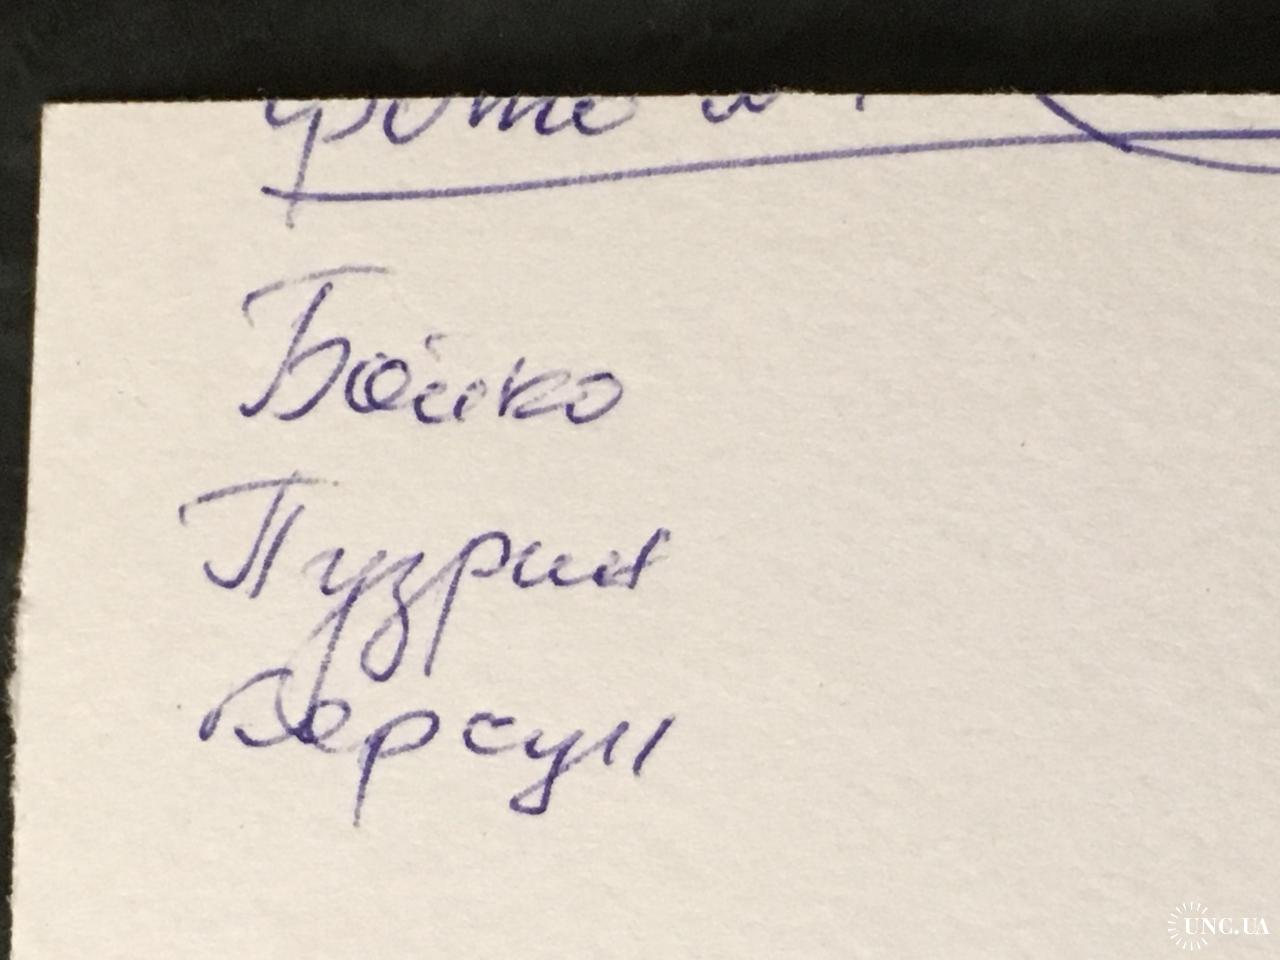 Бойко
Пузрин
Версул
UNC.UA